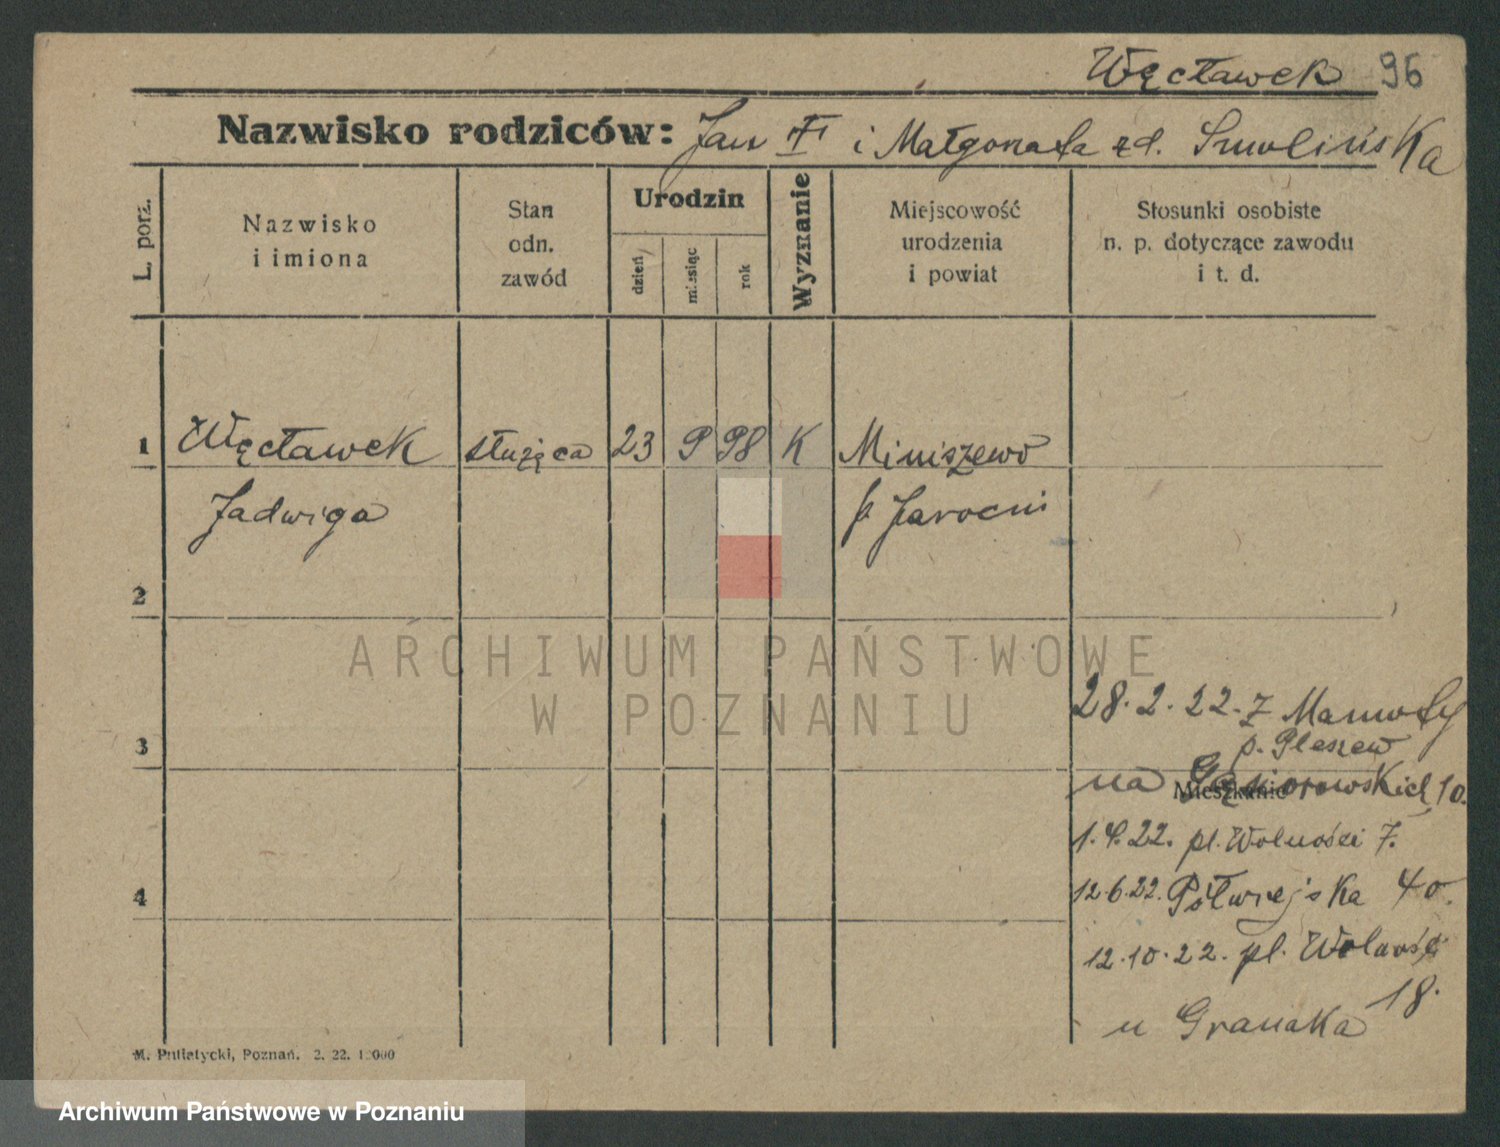 Węcławek 96
Nazwisko rodziców: Jan i Małgorzata zd. Smolińska
L. porz.
Nazwisko
i imiona
Stan
odn.
zawód
Urodzin
dzień
miesiąc
rok
Wyznanie
Miejscowość
urodzenia
i powiat
Stosunki osobiste
n. p. dotyczące zawodu
i t. d.
1 Węcławek służąca 23 9 98 K Miniszewo
Jadwiga p Jarocin
2
ARCHIWUM PAŃSTWOWE
W POZNANIU
28.2.22. z
3 p. Pleszew
Mieszkanie
na Gąsiorowskich 10.
1.4.22. pl. Wolności 7.
4 12.6.22. Półwiejska 40.
12.10.22. pl. Wolności
18.
u Granaka
M. Putiatycki, Poznań. 2. 22. 12000
Archiwum Państwowe w Poznaniu